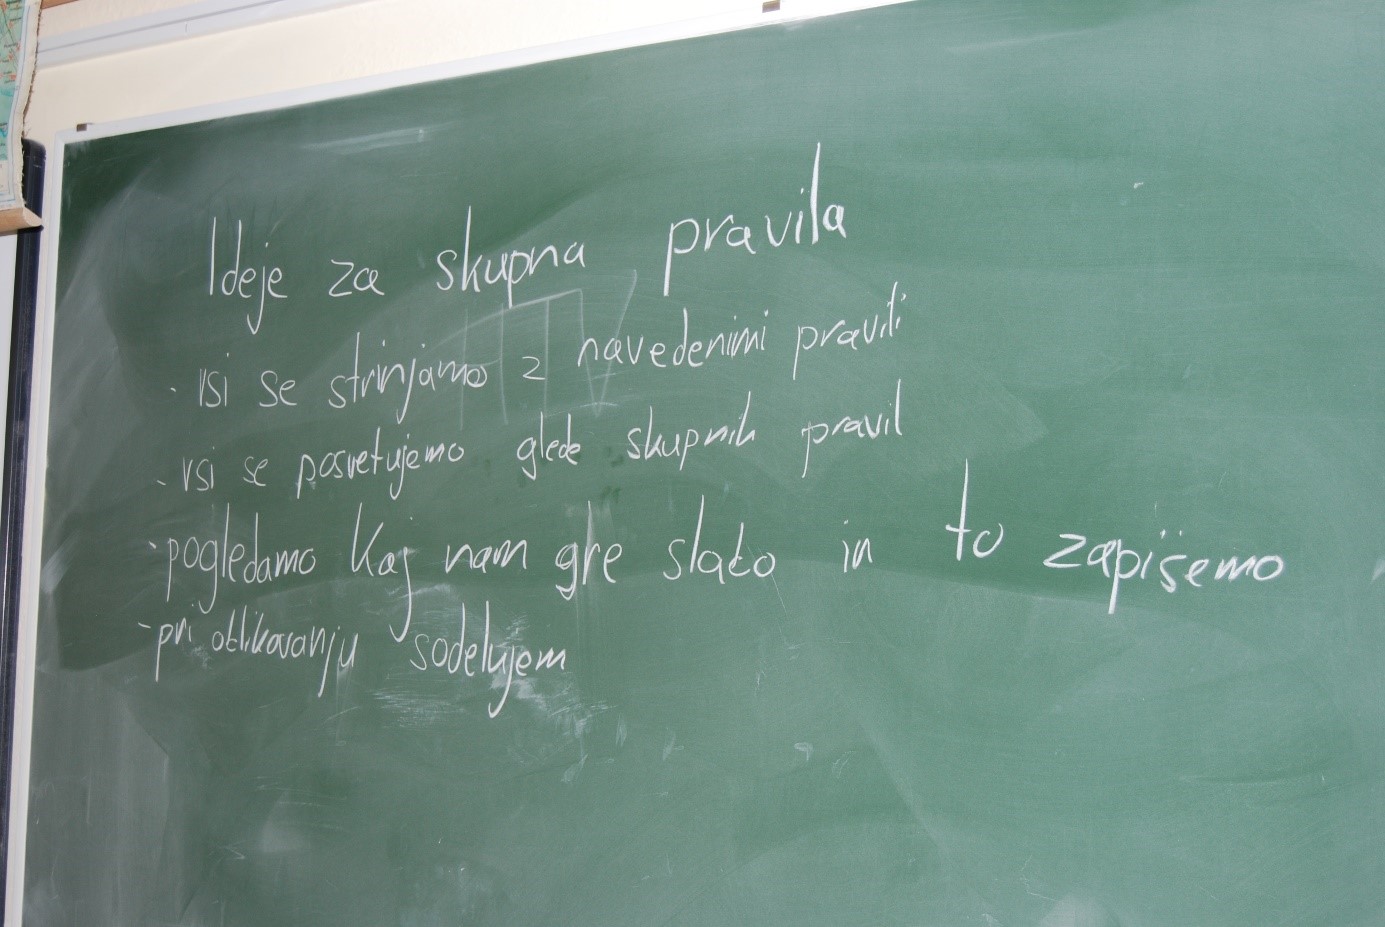 Ideje za skupna pravila
· vsi se strinjamo z navedenimi pravili
- vsi se posvetujemo glede skupnih pravil
- pogledamo kaj nam gre slabo in to zapišemo
- pri oblikovanju sodelujem